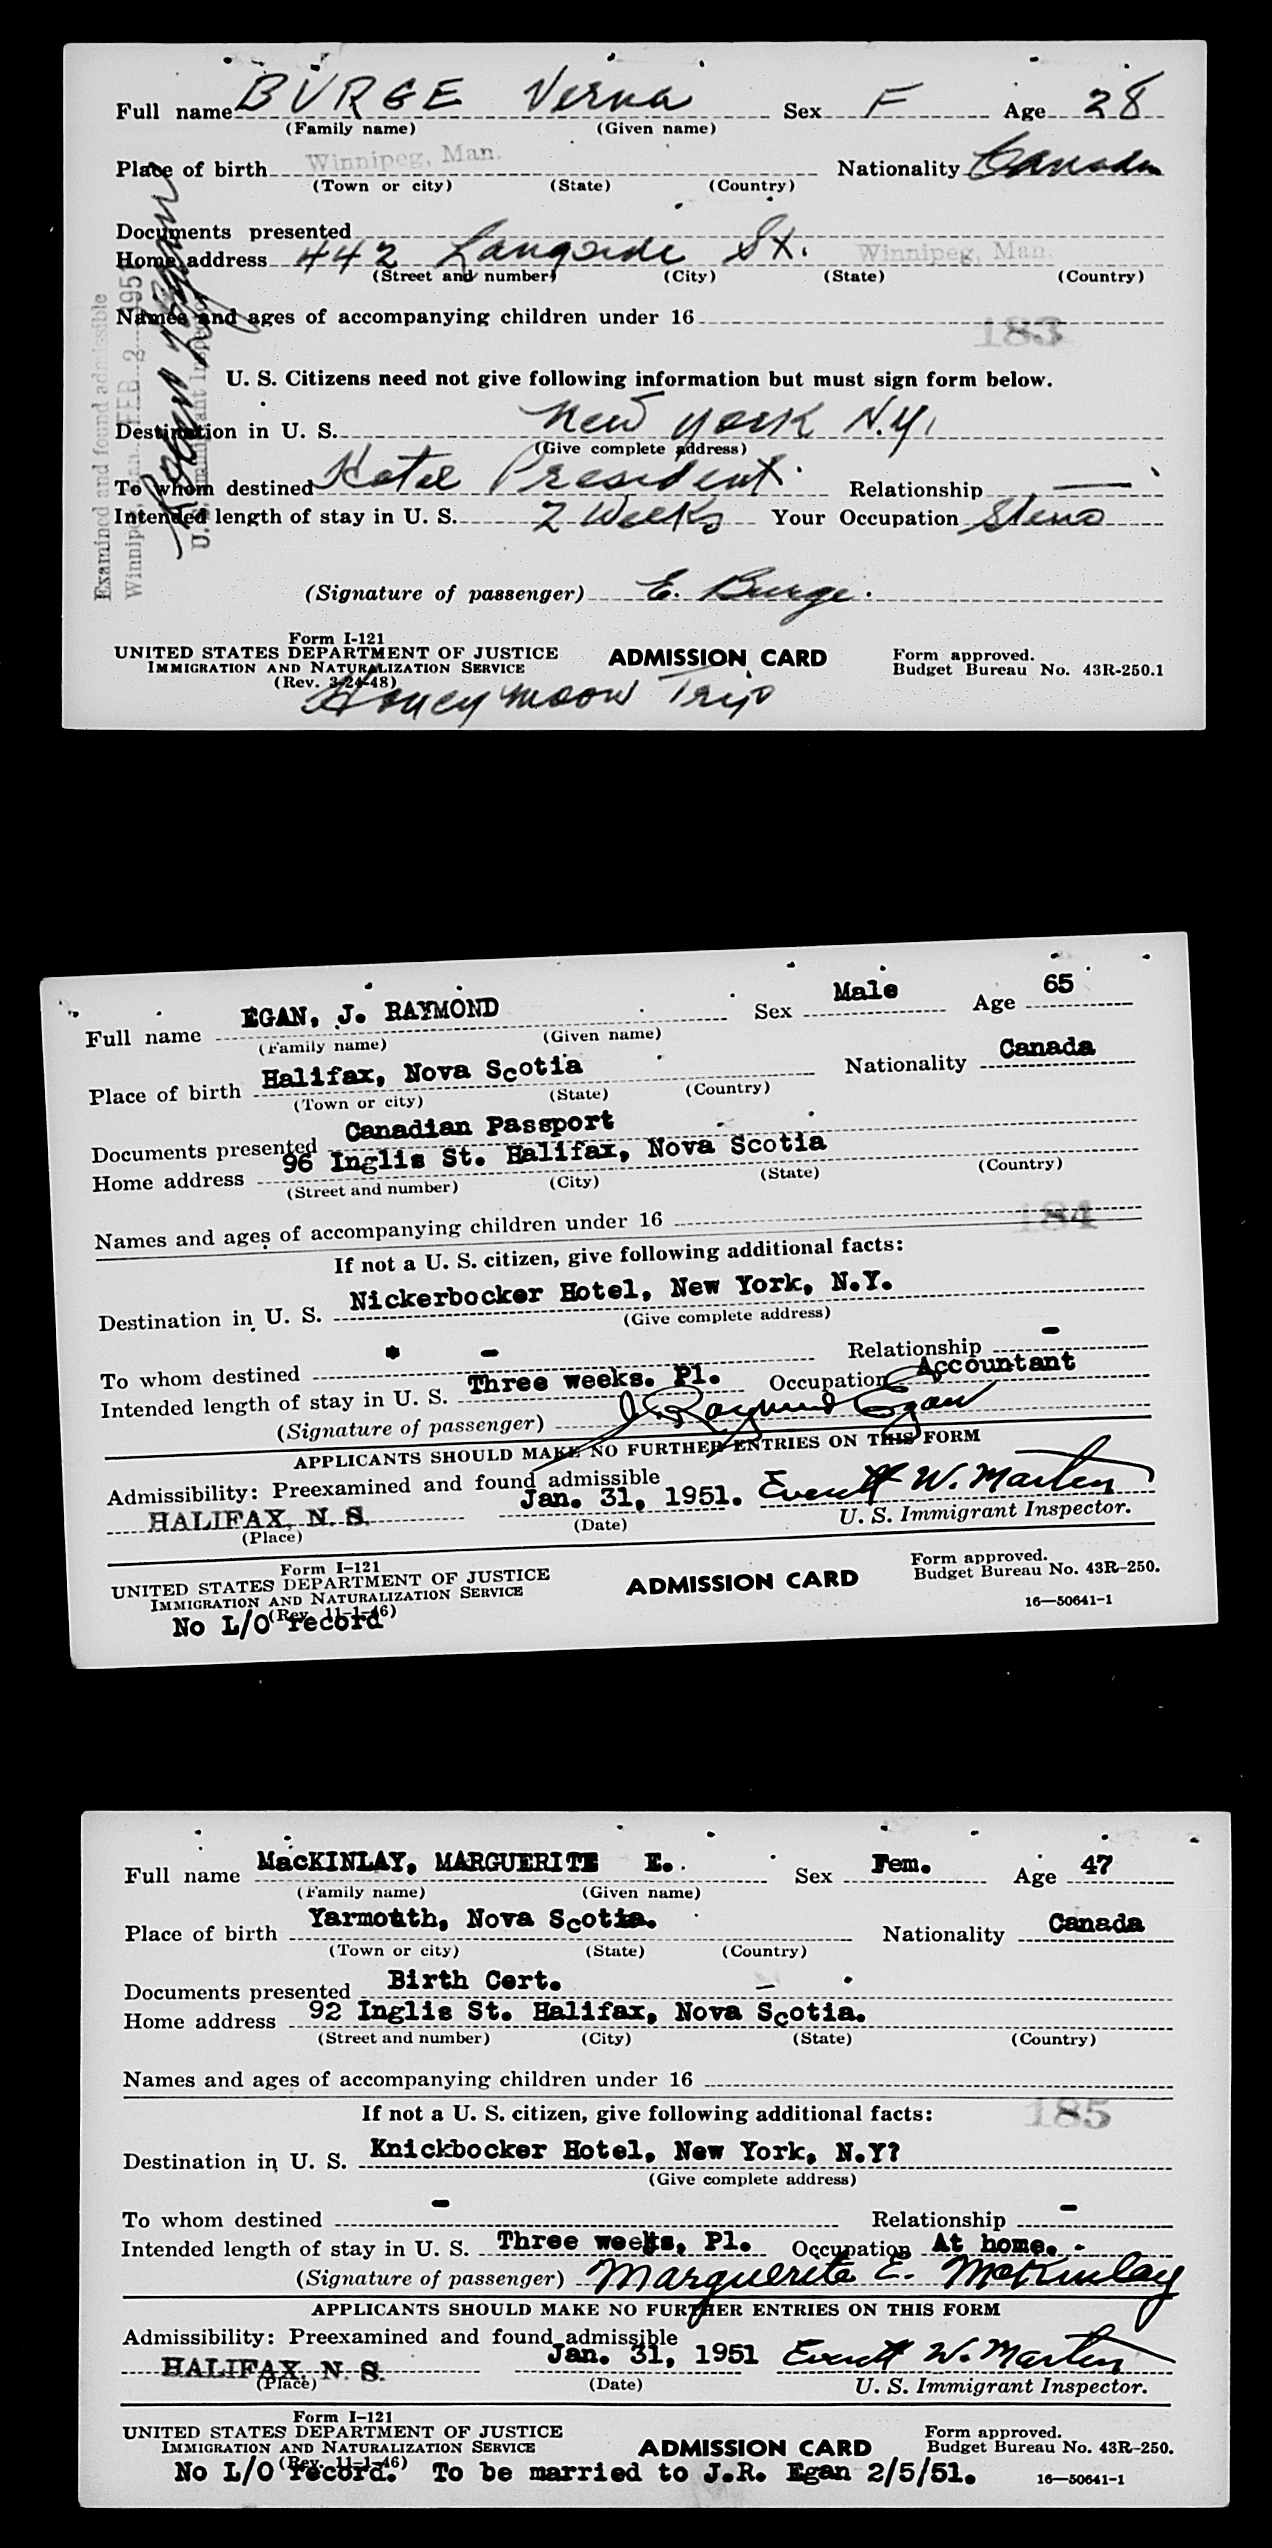 Full name BURGE Verna Sex F Age 28
(Family name) (Given name)
Place of birth Winnipeg, Man. Nationality Canada
(Town or city) (State) (Country)
Documents presented
Home address 442 Langside St. Winnipeg, Man.
(Street and number) (City) (State) (Country)
Names and ages of accompanying children under 16
183
U. S. Citizens need not give following information but must sign form below.
Destination in U. S. New York N.Y.
(Give complete address)
To whom destined Hotel President. Relationship —
Intended length of stay in U. S. 2 Weeks Your Occupation Steno
(Signature of passenger) E. Burge.
Examined and found admissible
Winnipeg, Man. FEB 2 1951
U.S. Immigrant Inspector
Form I-121
UNITED STATES DEPARTMENT OF JUSTICE
IMMIGRATION AND NATURALIZATION SERVICE
(Rev. 3-24-48)
ADMISSION CARD
Form approved.
Budget Bureau No. 43R-250.1
Honeymoon Trip
Full name EGAN, J. RAYMOND Sex Male Age 65
(Family name) (Given name)
Place of birth Halifax, Nova Scotia Nationality Canada
(Town or city) (State) (Country)
Documents presented Canadian Passport
Home address 96 Inglis St. Halifax, Nova Scotia
(Street and number) (City) (State) (Country)
Names and ages of accompanying children under 16
184
If not a U. S. citizen, give following additional facts:
Destination in U. S. Nickerbocker Hotel, New York, N.Y.
(Give complete address)
To whom destined - Relationship -
Intended length of stay in U. S. Three weeks. Pl. Occupation Accountant
(Signature of passenger) J. Raymond Egan
APPLICANTS SHOULD MAKE NO FURTHER ENTRIES ON THIS FORM
Admissibility: Preexamined and found admissible
HALIFAX, N. S. Jan. 31, 1951. Everett W. Marten
(Place) (Date) U. S. Immigrant Inspector.
Form I-121
UNITED STATES DEPARTMENT OF JUSTICE
IMMIGRATION AND NATURALIZATION SERVICE
(Rev. 11-1-46)
ADMISSION CARD
Form approved.
Budget Bureau No. 43R-250.
16—50641-1
No L/O record
Full name MacKINLAY, MARGUERITE E. Sex Fem. Age 47
(Family name) (Given name)
Place of birth Yarmouth, Nova Scotia. Nationality Canada
(Town or city) (State) (Country)
Documents presented Birth Cert. -
Home address 92 Inglis St. Halifax, Nova Scotia.
(Street and number) (City) (State) (Country)
Names and ages of accompanying children under 16
185
If not a U. S. citizen, give following additional facts:
Destination in U. S. Knickbocker Hotel, New York, N.Y?
(Give complete address)
To whom destined - Relationship -
Intended length of stay in U. S. Three weeks, Pl. Occupation At home. -
(Signature of passenger) Marguerite E. MacKinlay
APPLICANTS SHOULD MAKE NO FURTHER ENTRIES ON THIS FORM
Admissibility: Preexamined and found admissible
HALIFAX, N. S. Jan. 31, 1951 Everett W. Marten
(Place) (Date) U. S. Immigrant Inspector.
Form I-121
UNITED STATES DEPARTMENT OF JUSTICE
IMMIGRATION AND NATURALIZATION SERVICE
(Rev. 11-1-46)
ADMISSION CARD
Form approved.
Budget Bureau No. 43R-250.
16—50641-1
No L/O record. To be married to J.R. Egan 2/5/51.